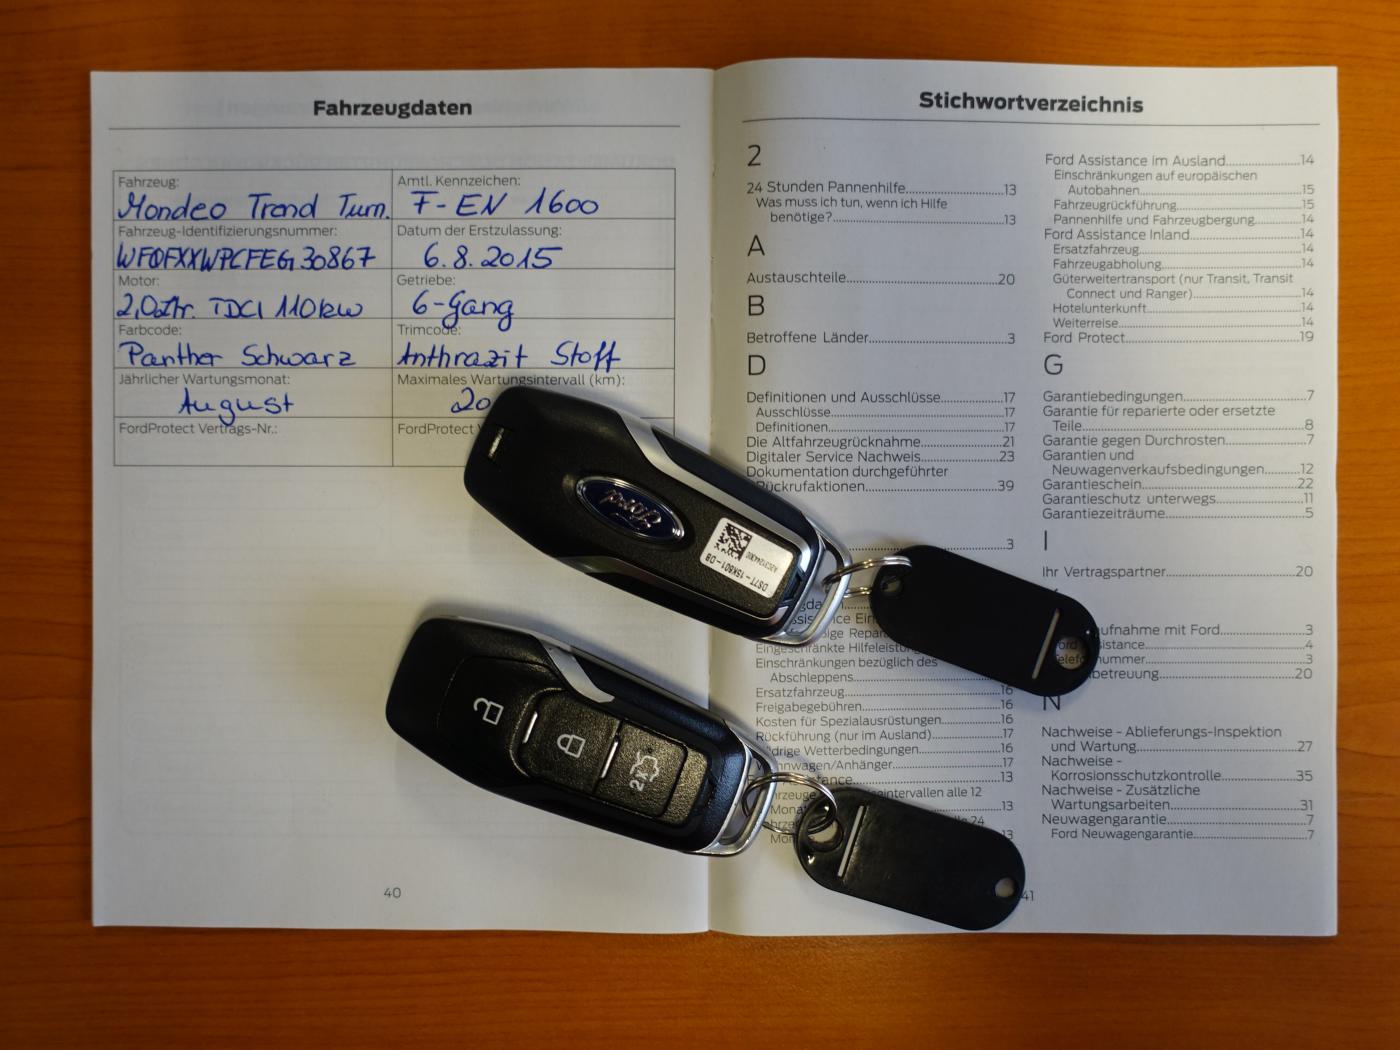 Fahrzeugdaten
Fahrzeug:
Mondeo Trend Turn.
Amtl. Kennzeichen:
F-EN 1600
Fahrzeug-Identifizierungsnummer:
WF0FXXWPCFEG30867
Datum der Erstzulassung:
6.8.2015
Motor:
2,0ltr. TDCI 110kW
Getriebe:
6-Gang
Farbcode:
Panther Schwarz
Trimcode:
Anthrazit Stoff
Jährlicher Wartungsmonat:
August
Maximales Wartungsintervall (km):
20
FordProtect Vertrags-Nr.:
FordProtect
40
Stichwortverzeichnis
2
24 Stunden Pannenhilfe 13
Was muss ich tun, wenn ich Hilfe
benötige? 13
A
Austauschteile 20
B
Betroffene Länder 3
D
Definitionen und Ausschlüsse 17
Ausschlüsse 17
Definitionen 17
Die Altfahrzeugrücknahme 21
Digitaler Service Nachweis 23
Dokumentation durchgeführter
Rückrufaktionen 39
3
Eingeschränkte
Einschränkungen bezüglich des
Abschleppens
Ersatzfahrzeug 16
Freigabegebühren 16
Kosten für Spezialausrüstungen 16
Rückführung (nur im Ausland) 17
Widrige Wetterbedingungen 16
Wohnwagen/Anhänger 17
13
alle 12
13
24
13
Ford Assistance im Ausland 14
Einschränkungen auf europäischen
Autobahnen 15
Fahrzeugrückführung 15
Pannenhilfe und Fahrzeugbergung 14
Ford Assistance Inland 14
Ersatzfahrzeug 14
Fahrzeugabholung 14
Güterweitertransport (nur Transit, Transit
Connect und Ranger) 14
Hotelunterkunft 14
Weiterreise 14
Ford Protect 19
G
Garantiebedingungen 7
Garantie für reparierte oder ersetzte
Teile 8
Garantie gegen Durchrosten 7
Garantien und
Neuwagenverkaufsbedingungen 12
Garantieschein 22
Garantieschutz unterwegs 11
Garantiezeiträume 5
I
Ihr Vertragspartner 20
mit Ford 3
4
3
20
N
Nachweise - Ablieferungs-Inspektion
und Wartung 27
Nachweise -
Korrosionsschutzkontrolle 35
Nachweise - Zusätzliche
Wartungsarbeiten 31
Neuwagengarantie 7
Ford Neuwagengarantie 7
41
Ford
DS7T-15K601-DB
2x